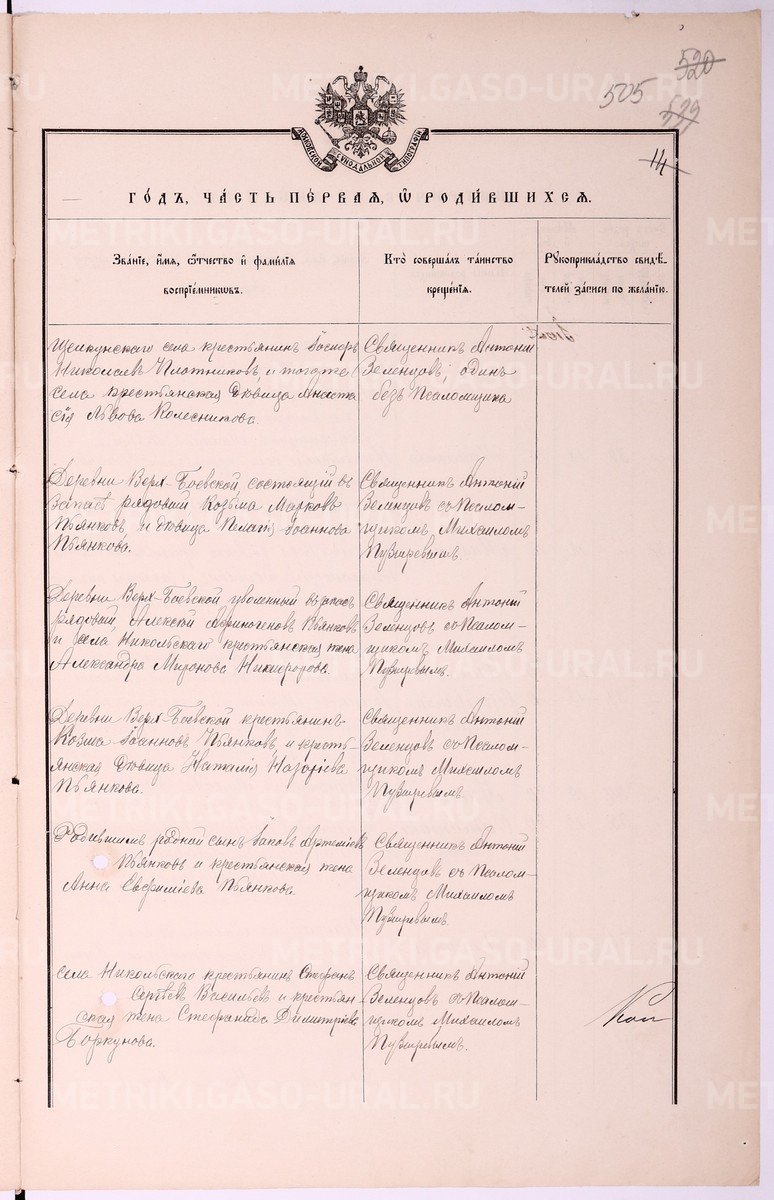 520
505
529
14
МОСКОВСКОЙ СѴНОДАЛЬНОЙ ТИПОГРАФІИ
ГО́ДЪ, ЧА́СТЬ ПЕ́РВАЯ, Ѽ РОДИ́ВШИХСЯ.
Зва́ніе, и́мя, ѻ҆́тчество и҆ фами́лія
воспріе́мниковъ.
Кто̀ соверша́лъ та́инство
креще́нія.
Рꙋкоприкла́дство свидѣ́-
телей за́писи по жела́нію.
Щелкунскаго села крестьянинъ
Николаевъ Плотниковъ, и тогоже
села крестьянская дѣвица Анаста
сія Львова Колесникова.
Священникъ Антоній
Зеленцовъ, одинъ
безъ Псаломщика
Деревни Верх-Боевской состоящій въ
запасѣ рядовой Козьма Марковъ
Пьянковъ, и дѣвица Пелагія Іоаннова
Пьянкова.
Священникъ Антоній
Зеленцовъ съ Псалом-
щикомъ Михаиломъ
Пузыревымъ.
Деревни Верх-Боевской уволенный въ запасъ
рядовой, Алексѣй Ермогеновъ Пьянковъ
и села Никольскаго крестьянская жена
Александра Миронова Никифорова.
Священникъ Антоній
Зеленцовъ со Псалом-
щикомъ Михаиломъ
Пузыревымъ.
Деревни Верх-Боевской крестьянинъ
Козма Іоанновъ Пьянковъ, и кресть-
янская дѣвица Наталія
Пьянкова.
Священникъ Антоній
Зеленцовъ со Псалом-
щикомъ Михаиломъ
Пузыревымъ.
родной сынъ Іаковъ Артеміевъ
Пьянковъ и крестьянская жена
Анна Евфиміева Пьянкова.
Священникъ Антоній
Зеленцовъ съ Псалом-
щикомъ Михаиломъ
Пузыревымъ.
села Никольскаго крестьянинъ Стефанъ
Сергѣевъ Васильевъ и крестьян
ская жена Стефанида Димитріева
Боркунова.
Священникъ Антоній
Зеленцовъ со Псалом-
щикомъ Михаиломъ
Пузыревымъ.
METRIKI.GASO-URAL.RU